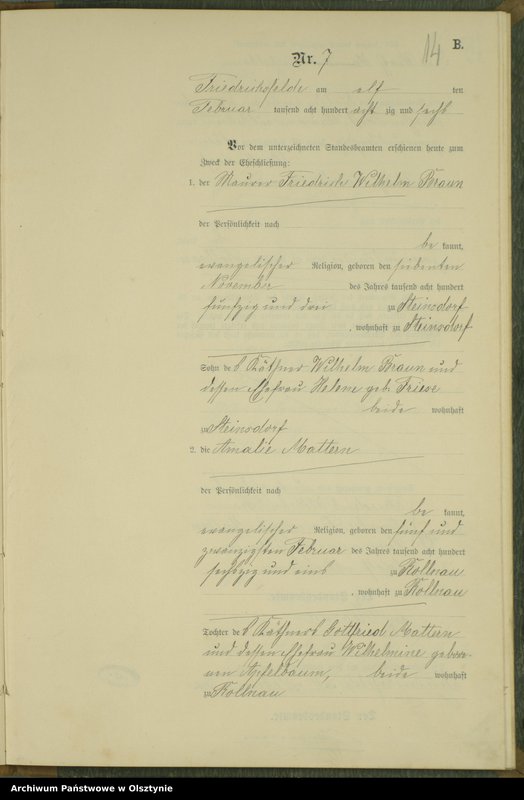 14 B.
Nr. 7
Friedrichsfelde am elf ten
Februar tausend acht hundert acht zig und sechs
Vor dem unterzeichneten Standesbeamten erschienen heute zum
Zweck der Eheschließung:
1. der Maurer Friedrich Wilhelm Braun
der Persönlichkeit nach
be kannt,
evangelischer Religion, geboren den siebenten
November des Jahres tausend acht hundert
fünfzig und drei zu Steinsdorf
, wohnhaft zu Steinsdorf
Sohn des Käthner Wilhelm Braun und
dessen Ehefrau Helene geb. Friese
beide wohnhaft
zu Steinsdorf
2. die Amalie Mattern
der Persönlichkeit nach
be kannt,
evangelischer Religion, geboren den fünf und
zwanzigsten Februar des Jahres tausend acht hundert
sechszig und eins zu Kollnau
, wohnhaft zu Kollnau
Tochter des Käthners Gottfried Mattern
und dessen Ehefrau Wilhelmine gebore-
nen Apfelbaum, beide wohnhaft
zu Kollnau
Archiwum Państwowe w Olsztynie